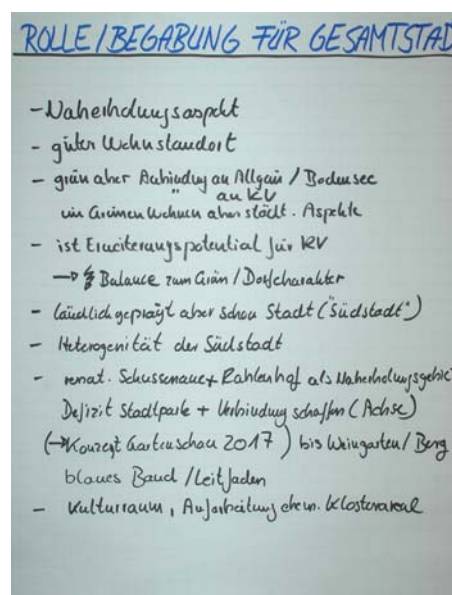 ROLLE / BEGABUNG FÜR GESAMTSTAD
- Naherholungsaspekt
- guter Wohnstandort
- grün aber Anbindung an Allgäu / Bodensee
" an RV
im Grünen Wohnen aber städt. Aspekte
- ist Erweiterungspotential für RV
→ Balance zum Grün / Dorfcharakter
- ländlich geprägt aber schon Stadt ("Südstadt")
- Heterogenität der Südstadt
- renat. Schussenaue + Rahlenhof als Naherholungsgebie
Defizit Stadtparks + Verbindung schaffen (Achse)
(→ Konzept Gartenschau 2017) bis Weingarten / Berg
blaues Band / Leitfaden
- Kulturraum, Aufarbeitung ehem. Klosterareal